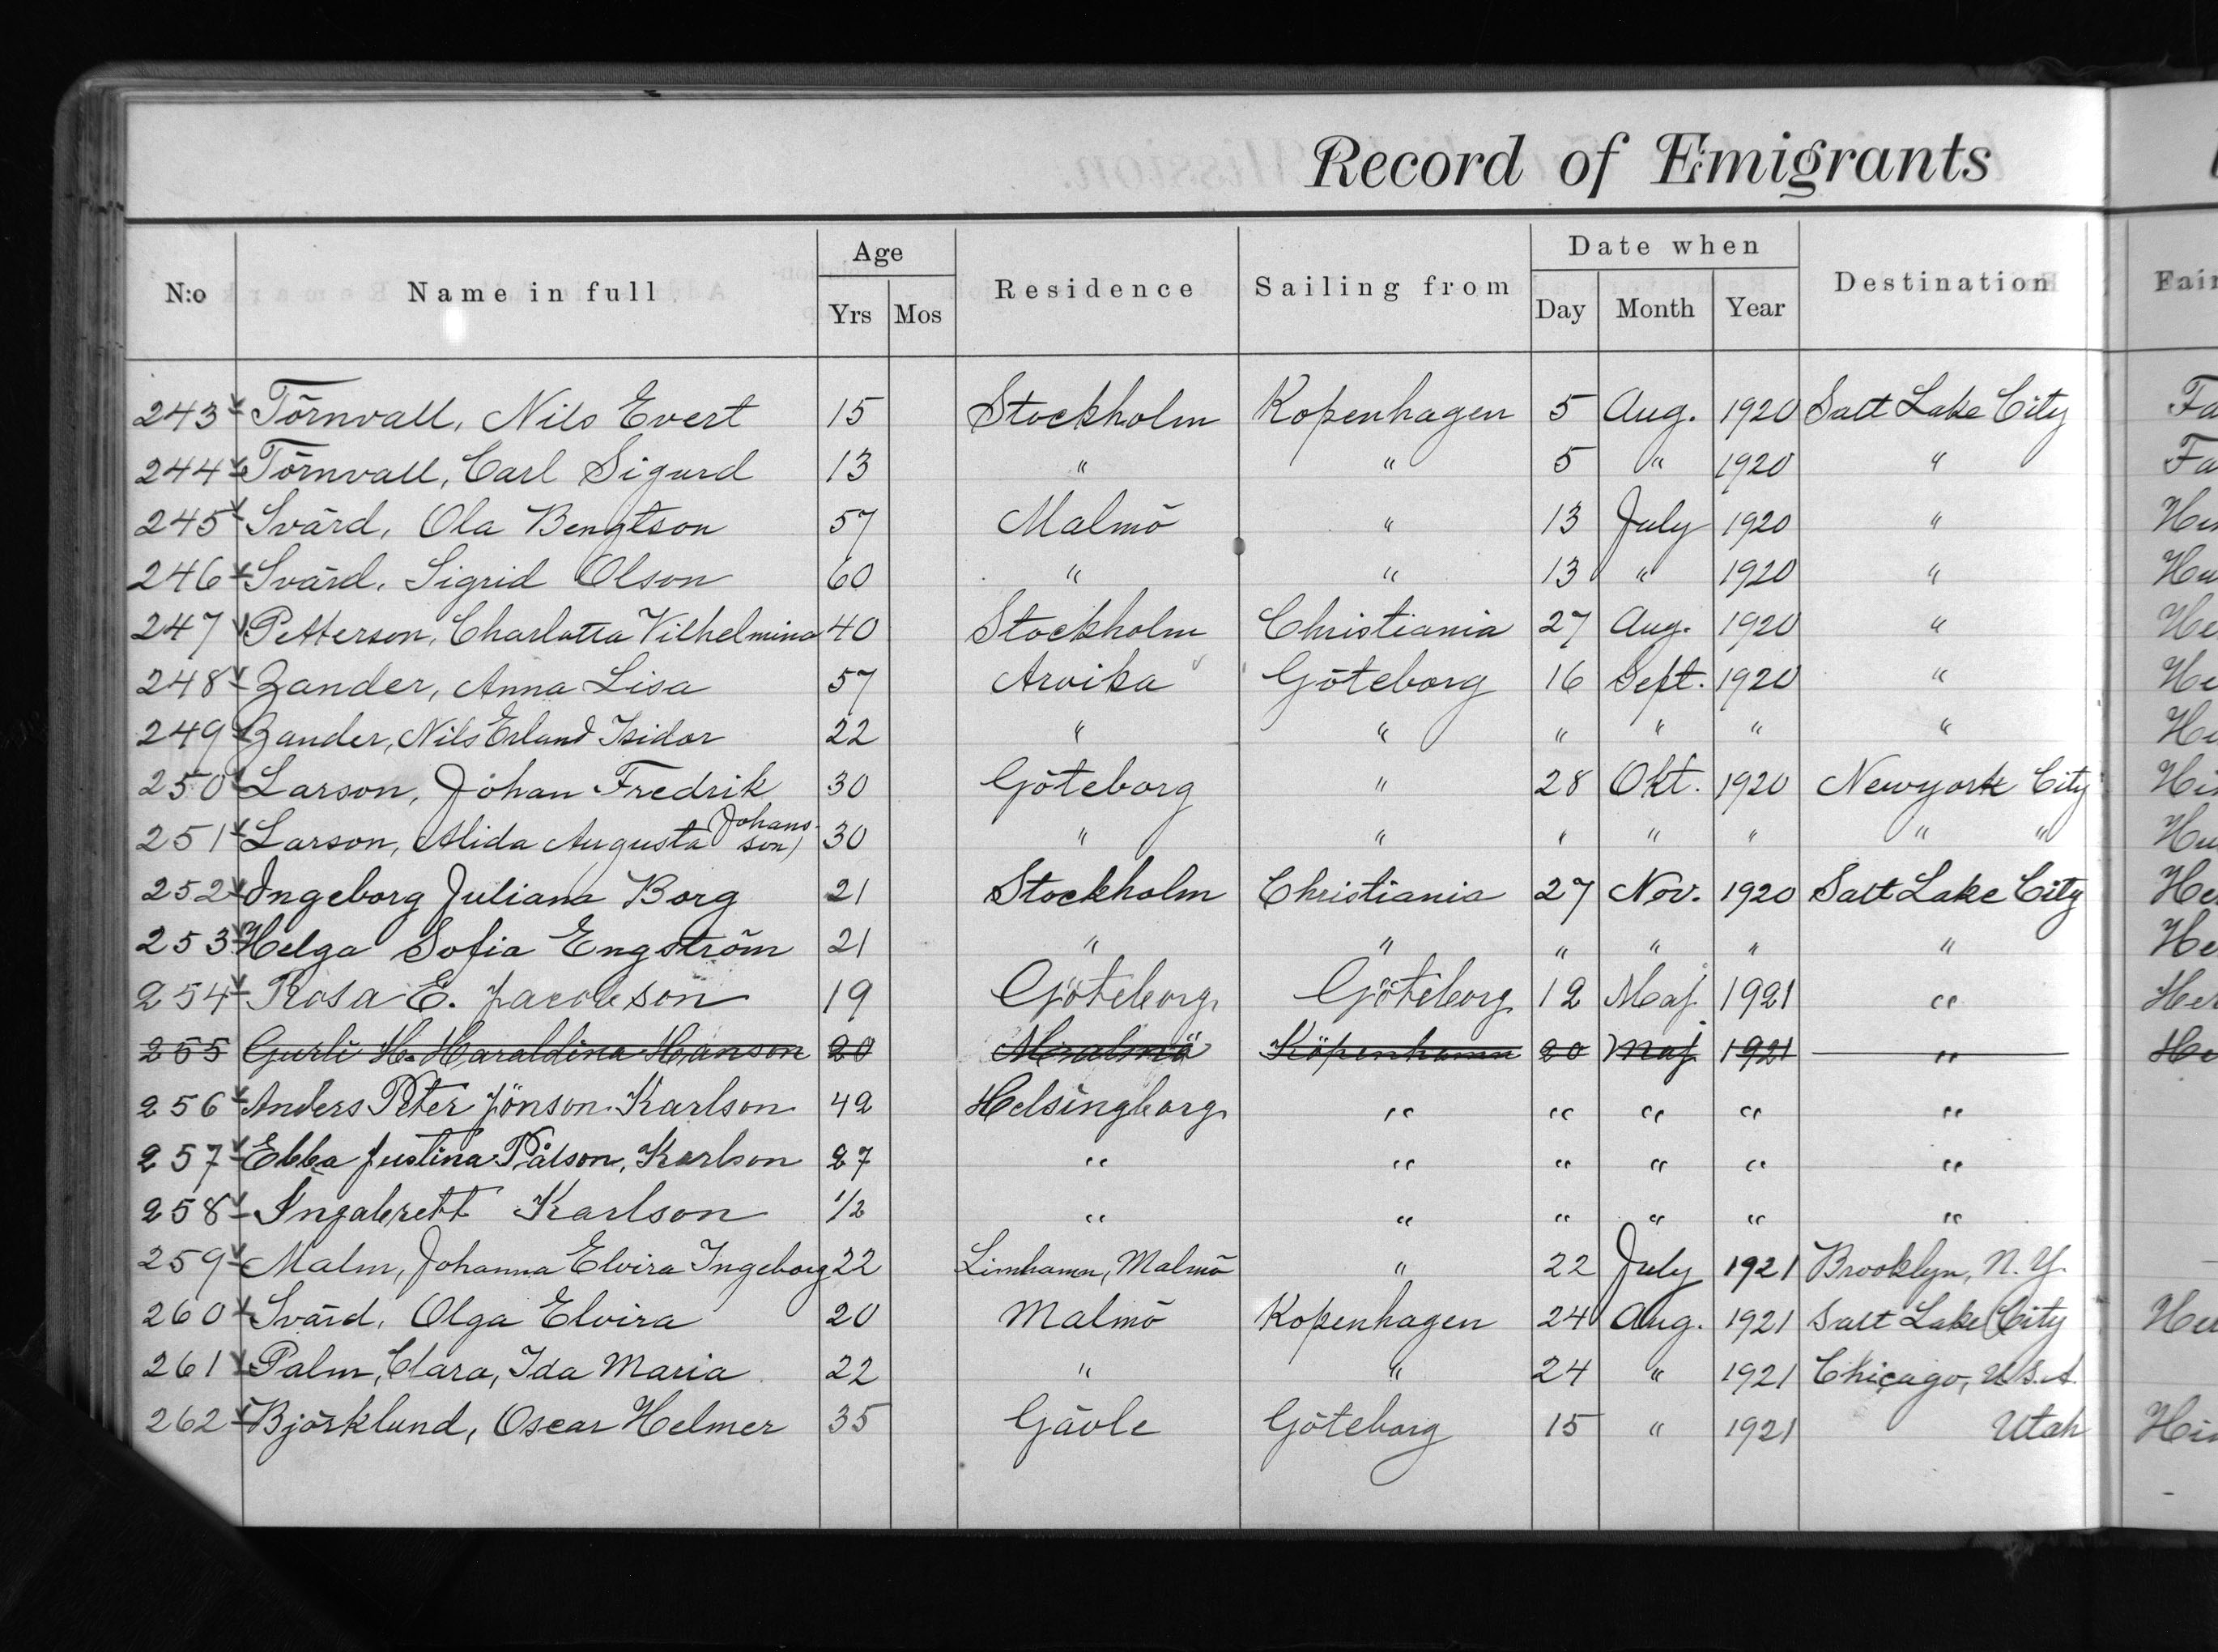 Record of Emigrants
N:o Name in full Age Residence Sailing from Date when Destination
Yrs Mos Day Month Year
243 Törnvall, Nils Evert 15 Stockholm Kopenhagen 5 Aug. 1920 Salt Lake City Fa
244 Törnvall, Carl Sigurd 13 " " 5 " 1920 " Fa
245 Svärd, Ola Bengtson 57 Malmö " 13 July 1920 "
246 Svärd, Sigrid Olson 60 " " 13 " 1920 "
247 Petterson, Charlotta Vilhelmina 40 Stockholm Christiania 27 Aug. 1920 " He
248 Zander, Anna Lisa 57 Arvika Göteborg 16 Sept. 1920 " He
249 Zander, Nils Erland Isidor 22 " " " " " "
250 Larson, Johan Fredrik 30 Göteborg " 28 Okt. 1920 Newyork City
251 Larson, Alida Augusta Johans-son) 30 " " " " " " "
252 Ingeborg Juliana Borg 21 Stockholm Christiania 27 Nov. 1920 Salt Lake City He
253 Helga Sofia Engström 21 " " " " " " He
254 Rosa E. Jacobson 19 Göteborg Göteborg 12 Maj 1921 " Her
255 Gurli H. Haraldina Hanson 20 Malmö Köpenhamn 20 Maj 1921 " He
256 Anders Peter Jönson Karlson 42 Helsingborg " " " " "
257 Ebba Justina Pålson, Karlson 27 " " " " " "
258 Ingabrett Karlson 1/2 " " " " " "
259 Malm, Johanna Elvira Ingeborg 22 Limhamn, Malmö " 22 July 1921 Brooklyn, N.Y.
260 Svärd, Olga Elvira 20 Malmö Kopenhagen 24 Aug. 1921 Salt Lake City
261 Palm, Clara, Ida Maria 22 " " 24 " 1921 Chicago, U.S.A.
262 Björklund, Oscar Helmer 35 Gävle Göteborg 15 " 1921 Utah